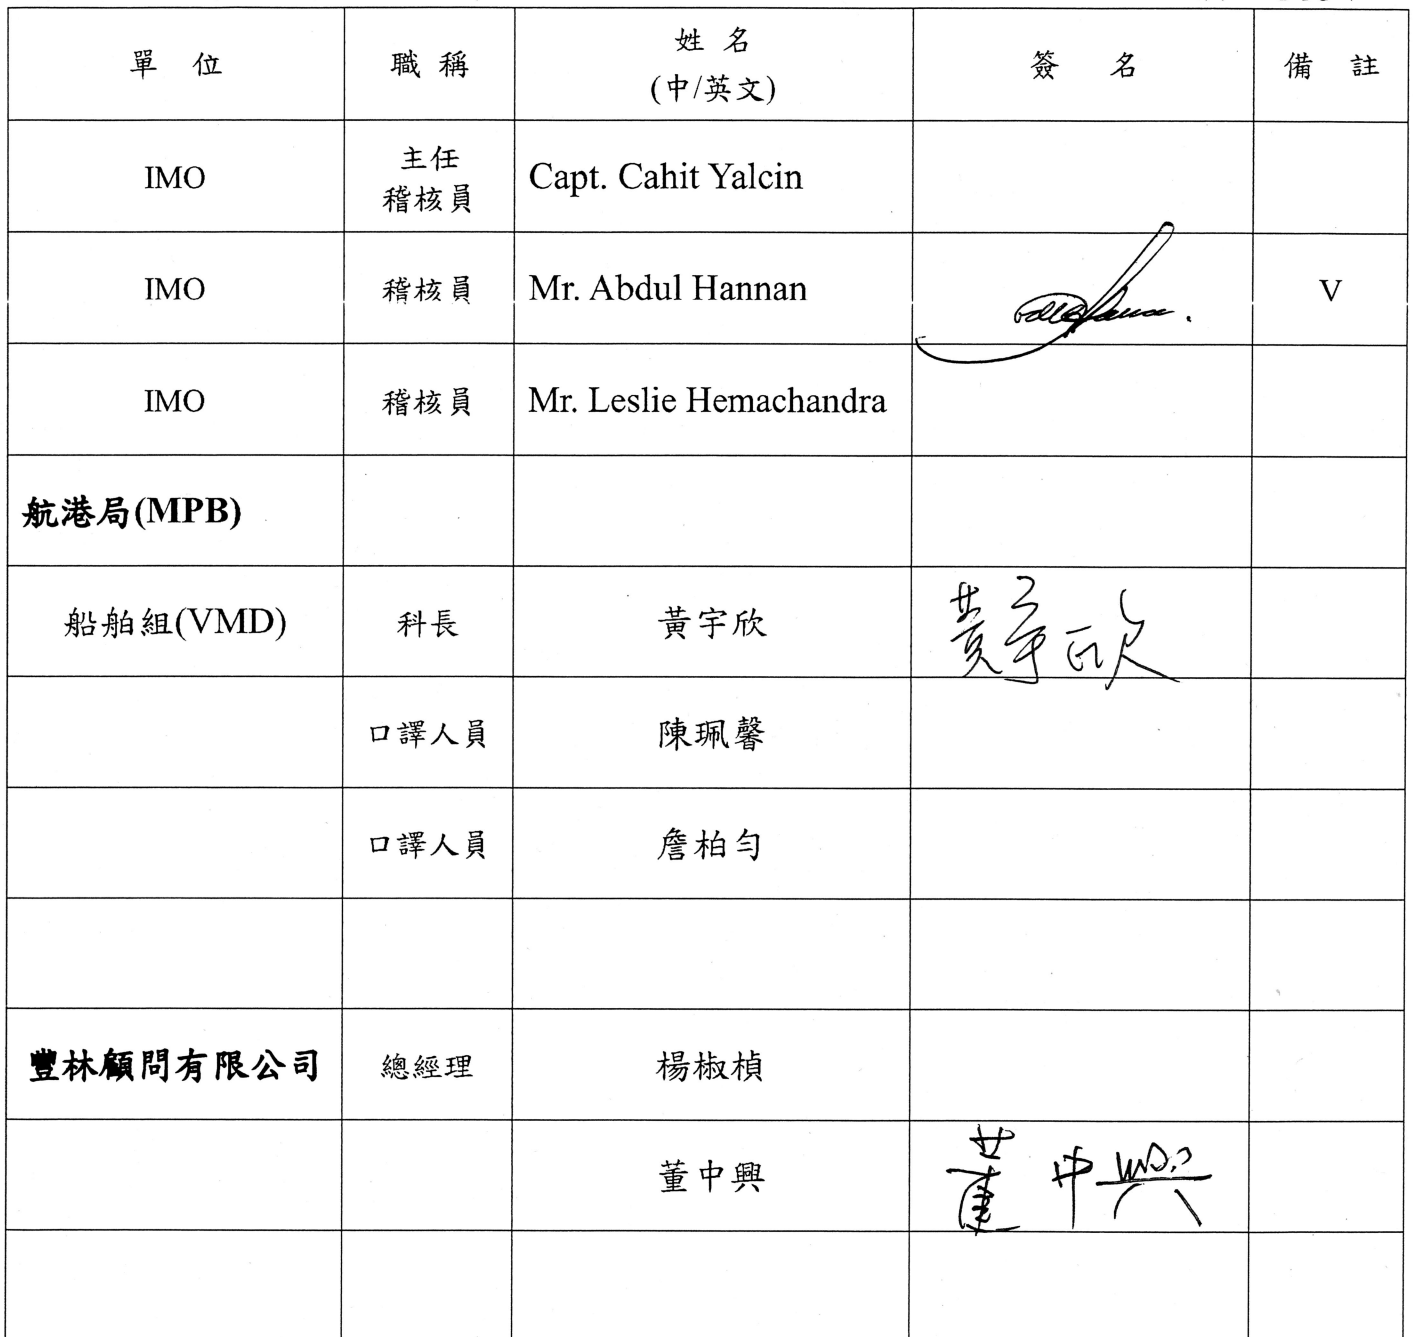 單 位 職 稱 姓 名 簽 名 備 註
(中/英文)
IMO 主任 Capt. Cahit Yalcin
稽核員
IMO 稽核員 Mr. Abdul Hannan V
IMO 稽核員 Mr. Leslie Hemachandra
航港局(MPB)
船舶組(VMD) 科長 黃宇欣 黃宇欣
口譯人員 陳珮馨
口譯人員 詹柏勻
豐林顧問有限公司 總經理 楊椒楨
董中興 董中興